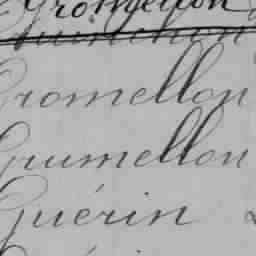 Gromellon
Gromellon
Grumellon
Guérin